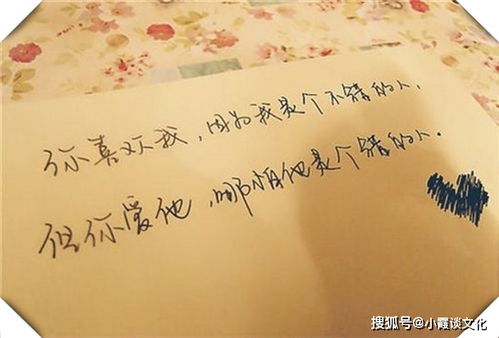 你喜欢我，因为我是个不错的人．
但你爱他，哪怕他是个错的人．
搜狐号@小霞谈文化